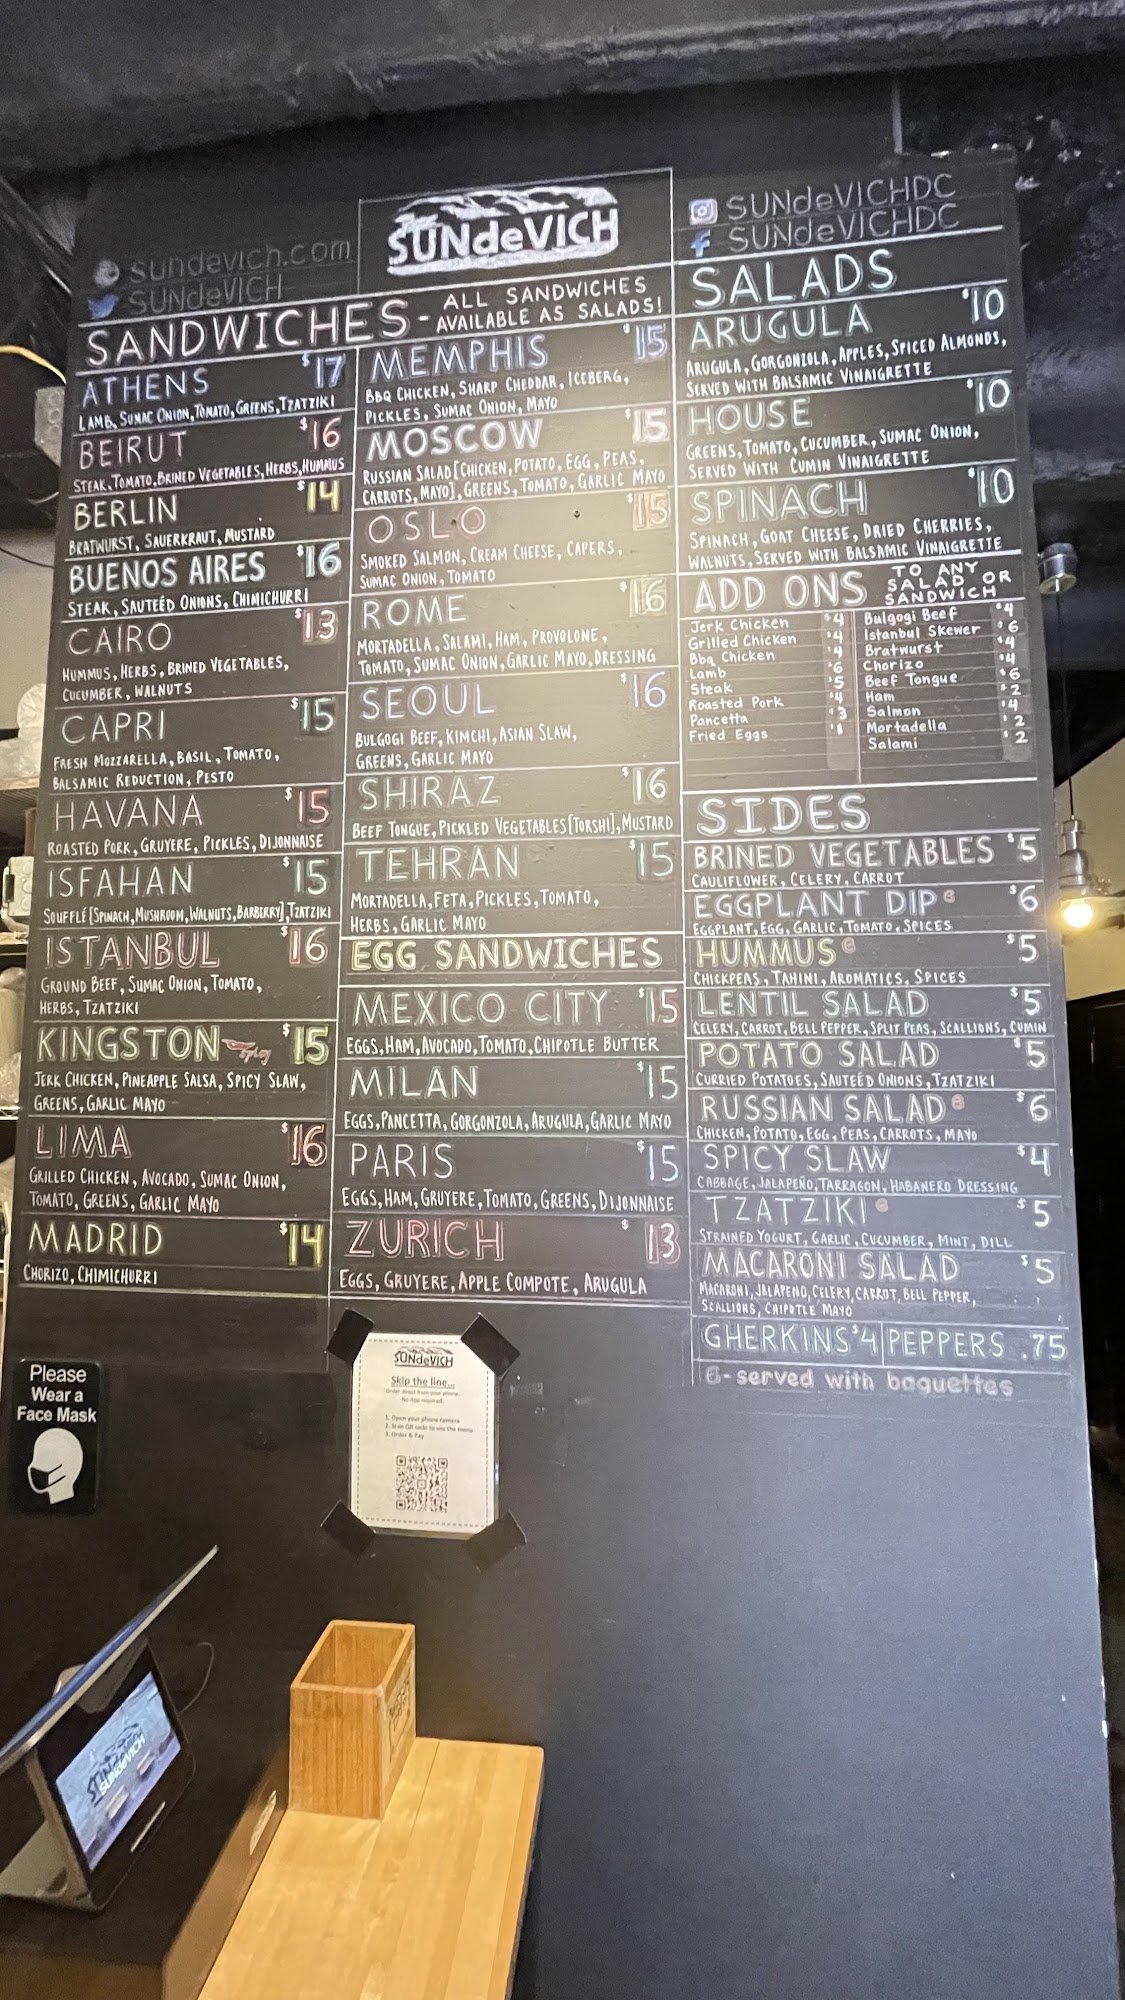 sundevich.com
SUNdeVICH
SUNdeVICH
SUNdeVICHDC
SUNdeVICHDC
SANDWICHES - ALL SANDWICHES
AVAILABLE AS SALADS!
ATHENS $17
LAMB, SUMAC ONION, TOMATO, GREENS, TZATZIKI
BEIRUT $16
STEAK, TOMATO, BRINED VEGETABLES, HERBS, HUMMUS
BERLIN $14
BRATWURST, SAUERKRAUT, MUSTARD
BUENOS AIRES $16
STEAK, SAUTEÉD ONIONS, CHIMICHURRI
CAIRO $13
HUMMUS, HERBS, BRINED VEGETABLES,
CUCUMBER, WALNUTS
CAPRI $15
FRESH MOZZARELLA, BASIL, TOMATO,
BALSAMIC REDUCTION, PESTO
HAVANA $15
ROASTED PORK, GRUYERE, PICKLES, DIJONNAISE
ISFAHAN $15
SOUFFLÉ [SPINACH, MUSHROOM, WALNUTS, BARBERRY], TZATZIKI
ISTANBUL $16
GROUND BEEF, SUMAC ONION, TOMATO,
HERBS, TZATZIKI
KINGSTON Spicy $15
JERK CHICKEN, PINEAPPLE SALSA, SPICY SLAW,
GREENS, GARLIC MAYO
LIMA $16
GRILLED CHICKEN, AVOCADO, SUMAC ONION,
TOMATO, GREENS, GARLIC MAYO
MADRID $14
CHORIZO, CHIMICHURRI
MEMPHIS $15
BBQ CHICKEN, SHARP CHEDDAR, ICEBERG,
PICKLES, SUMAC ONION, MAYO
MOSCOW $15
RUSSIAN SALAD [CHICKEN, POTATO, EGG, PEAS,
CARROTS, MAYO], GREENS, TOMATO, GARLIC MAYO
OSLO $15
SMOKED SALMON, CREAM CHEESE, CAPERS,
SUMAC ONION, TOMATO
ROME $16
MORTADELLA, SALAMI, HAM, PROVOLONE,
TOMATO, SUMAC ONION, GARLIC MAYO, DRESSING
SEOUL $16
BULGOGI BEEF, KIMCHI, ASIAN SLAW,
GREENS, GARLIC MAYO
SHIRAZ $16
BEEF TONGUE, PICKLED VEGETABLES [TORSHI], MUSTARD
TEHRAN $15
MORTADELLA, FETA, PICKLES, TOMATO,
HERBS, GARLIC MAYO
EGG SANDWICHES
MEXICO CITY $15
EGGS, HAM, AVOCADO, TOMATO, CHIPOTLE BUTTER
MILAN $15
EGGS, PANCETTA, GORGONZOLA, ARUGULA, GARLIC MAYO
PARIS $15
EGGS, HAM, GRUYERE, TOMATO, GREENS, DIJONNAISE
ZURICH $13
EGGS, GRUYERE, APPLE COMPOTE, ARUGULA
SALADS
ARUGULA $10
ARUGULA, GORGONZOLA, APPLES, SPICED ALMONDS,
SERVED WITH BALSAMIC VINAIGRETTE
HOUSE $10
GREENS, TOMATO, CUCUMBER, SUMAC ONION,
SERVED WITH CUMIN VINAIGRETTE
SPINACH $10
SPINACH, GOAT CHEESE, DRIED CHERRIES,
WALNUTS, SERVED WITH BALSAMIC VINAIGRETTE
ADD ONS TO ANY
SALAD OR
SANDWICH
Jerk Chicken $4
Grilled Chicken $4
Bbq Chicken $4
Lamb $6
Steak $5
Roasted Pork $4
Pancetta $3
Fried Eggs $1
Bulgogi Beef $4
Istanbul Skewer $6
Bratwurst $4
Chorizo $4
Beef Tongue $6
Ham $2
Salmon $4
Mortadella $2
Salami $2
SIDES
BRINED VEGETABLES $5
CAULIFLOWER, CELERY, CARROT
EGGPLANT DIP B $6
EGGPLANT, EGG, GARLIC, TOMATO, SPICES
HUMMUS B $5
CHICKPEAS, TAHINI, AROMATICS, SPICES
LENTIL SALAD $5
CELERY, CARROT, BELL PEPPER, SPLIT PEAS, SCALLIONS, CUMIN
POTATO SALAD $5
CURRIED POTATOES, SAUTEÉD ONIONS, TZATZIKI
RUSSIAN SALAD B $6
CHICKEN, POTATO, EGG, PEAS, CARROTS, MAYO
SPICY SLAW $4
CABBAGE, JALAPEÑO, TARRAGON, HABANERO DRESSING
TZATZIKI B $5
STRAINED YOGURT, GARLIC, CUCUMBER, MINT, DILL
MACARONI SALAD $5
MACARONI, JALAPEÑO, CELERY, CARROT, BELL PEPPER,
SCALLIONS, CHIPOTLE MAYO
GHERKINS $4 PEPPERS .75
B - served with baguettes
Please
Wear a
Face Mask
SUNdeVICH
Skip the line...
Order direct from your phone
No App required.
1. Open your phone camera
2. Scan QR code to see the menu
3. Order & Pay
SUNdeVICH